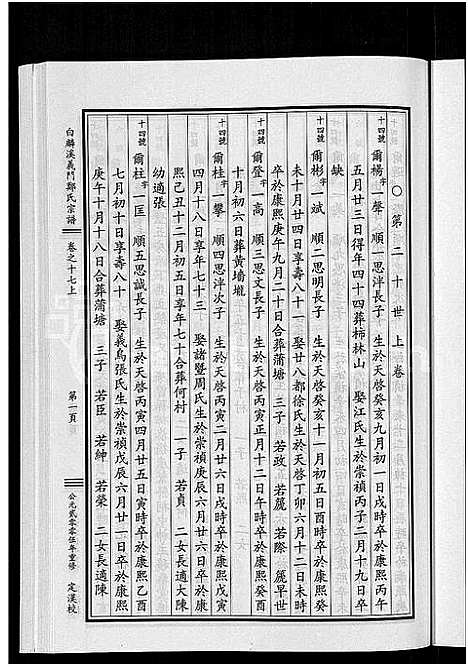 ○第二十世上卷
十四號 爾楊字一聲 順一思泮長子 生於天啓癸亥九月初一日戌時卒於康熙丙午
五月廿三日得年四十四葬柿林山 娶江氏生於崇禎丙子二月十九日卒
缺
十四號 爾彬字一斌 順二思明長子 生於天啓癸亥十一月初五日酉時卒於康熙癸
未十月廿四日享壽八十一 娶廿八都徐氏生於天啓丁卯六月十二日未時
卒於康熙庚午九月二十日合葬蒲塘 三子 若政 若篪 若際 篪早世
十四號 爾登字一高 順三思文長子 生於天啓丙寅正月十二日午時卒於康熙癸
十月初六日葬黄墻壠
十四號 爾桂字一攀 順四思泮次子 生於天啓丙寅二月廿六日戌時卒於康熙戊寅
四月十八日享年七十三 娶諸暨周氏生於崇禎庚辰三月廿六日辰時卒於康
熙己丑十二月初五日享年七十合葬何村 一子 若貞 二女長適大陳
幼適張
十四號 爾柱字一匡 順五思誠長子 生於天啓丙寅四月廿五日寅時卒於康熙乙酉
七月初十日享壽八十 娶義烏張氏生於崇禎戊辰六月廿一日卒於康熙
庚午十月十八日合葬蒲塘 三子 若臣 若紳 若榮 二女長適陳
白麟溪義門鄭氏宗譜 卷之十七上 第一頁 公元貳零零伍年重修 定漢校